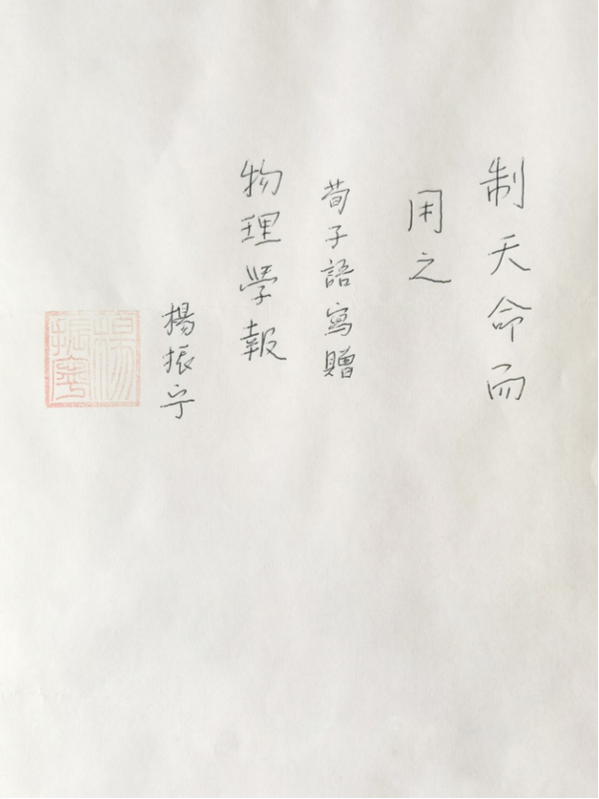 制天命而
用之
荀子語寫贈
物理學報
楊振宁
楊振寧